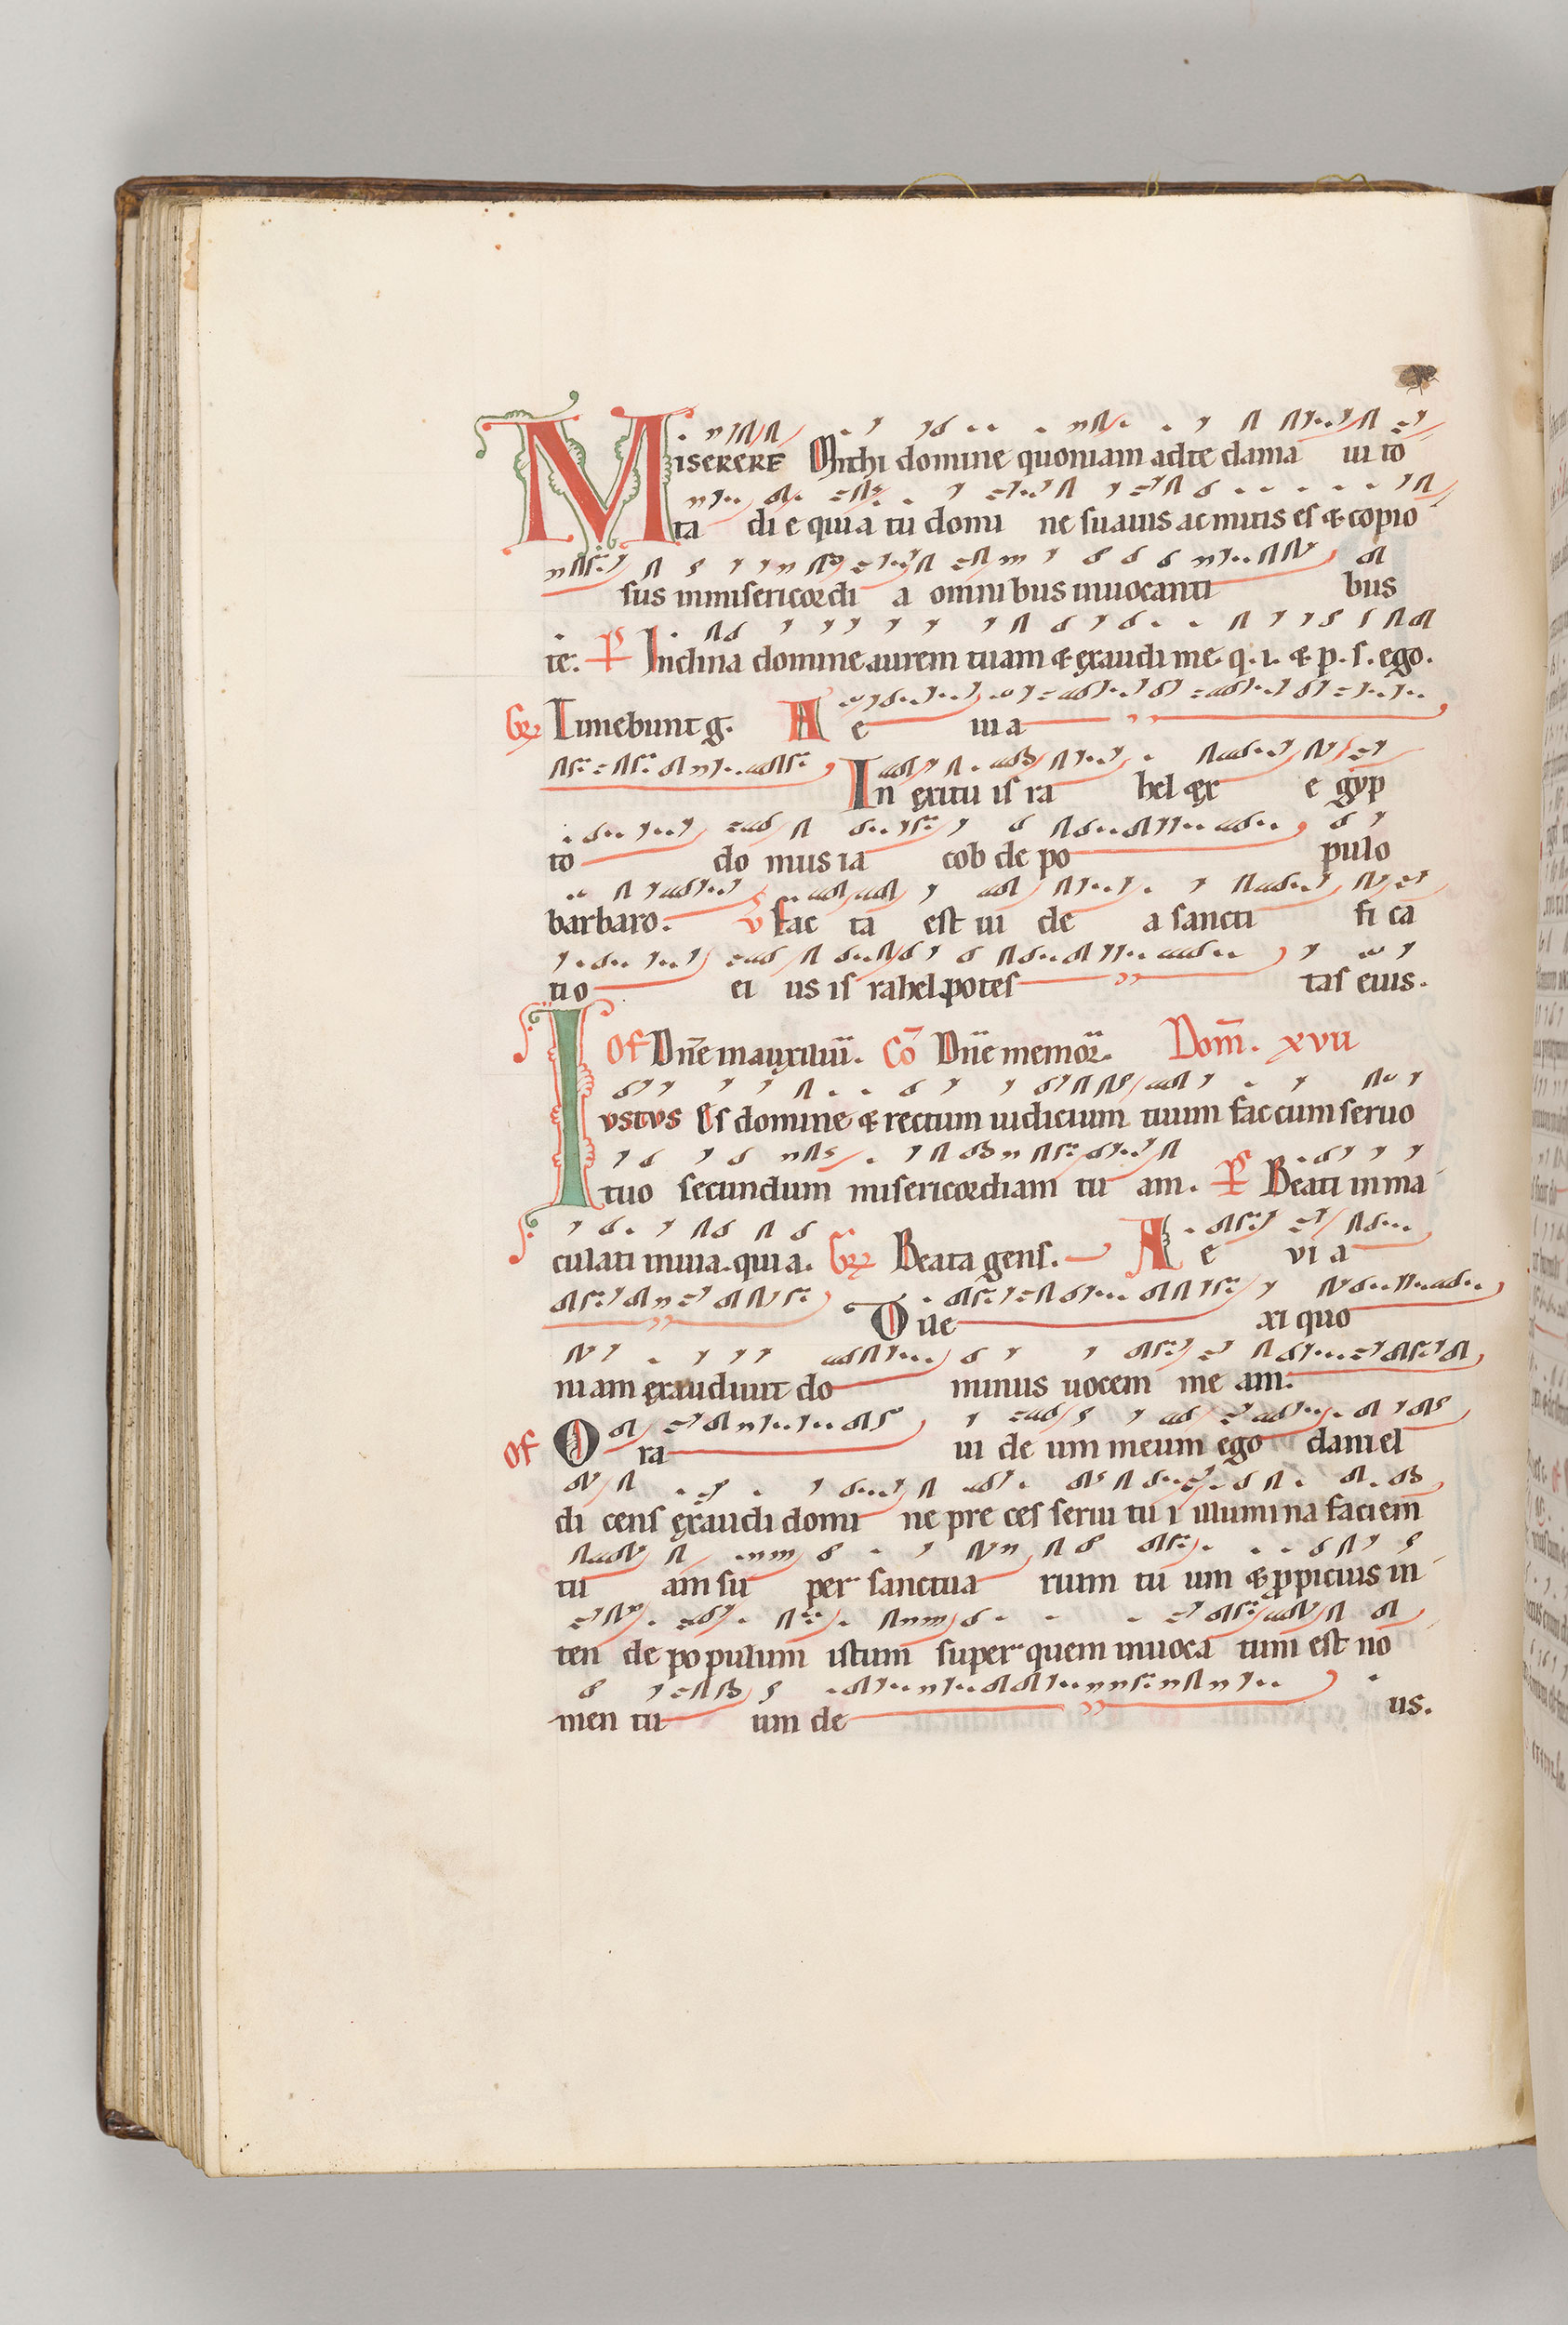 Miserere Michi domine quoniam ad te clama ui to
ta di e quia tu domi ne suauis ac mitis es & copio
sus in misericordi a omnibus inuocanti bus
te. P Inclina domine aurem tuam & exaudi me. q. i. & p. s. ego.
Gr Timebunt g. A e uia
In exitu is ra hel ex e gyp
to do mus ia cob de po pulo
barbaro. v fac ta est iu de a sancti fi ca
tio ei us is rahel potes tas eius.
Of Dn̄e in auxiliū. Cō Dn̄e memor. Dom̄. xvii
Iustus Es domine & rectum iudicium tuum fac cum seruo
tuo secundum misericordiam tu am. P Beati inma
culati in uia. qui a. Gr Beata gens. A e vi a
Dile xi quo
niam exaudiuit do minus uocem me am.
Of O ra ui de um meum ego daniel
di cens exaudi domi ne pre ces serui tu i illumina faciem
tu am su per sanctua rium tu um & ꝓpicius in
ten de populum istum super quem inuoca tum est no
men tu um de us.